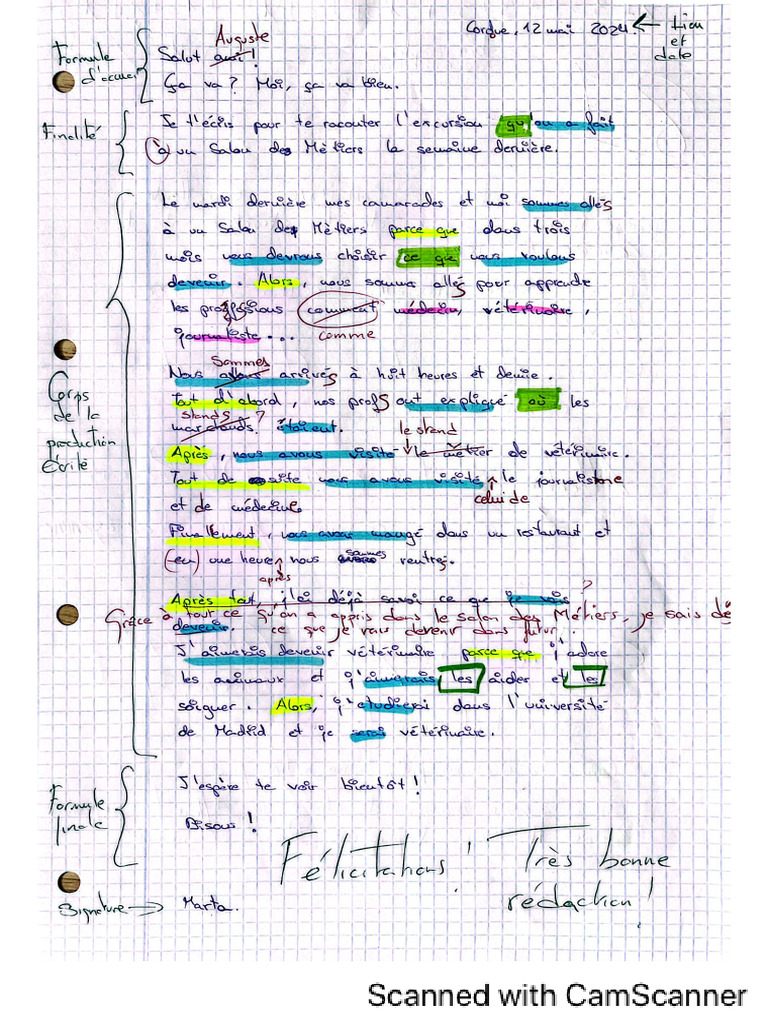 Cordue, 12 mai 2024. ← Lieu et date
Formule d'accueil
Auguste
Salut ami !
Ça va ? Moi, ça va bien.
Finalité
Je t'écris pour te racouter l'excursion qu' ou a fait
à un Salou des Mètiers la semaine dernière.
Le mardi dernière mes camarades et moi sommes allés
à un Salou des Mètiers parce que dans trois
mois nous devrous choisir ce que nous voulous
devenir. Alors, nous somme allés pour apprendre
les professions comment médecin, vétérinaire,
journaliste... comme
Sommes
Nous avous arrivés à huit heures et demie.
Tout d'abord, nos profs ont expliqué où les
stands ?
marchauds étaient. le stand
Corps de la production écrite
Après, nous avous visité le métier de vétérinaire.
Tout de suite nous avous visité le journalisme
celui de
et de médecine.
Finallement, nous avous mangé dans un restaurant et
sommes
(en) une heure nous avous rentré.
après
Après tout, j'ai déjà savoir ce que je vais ?
Grâce à tout ce qu'on a appris dans le salon des Métiers, je sais dé
devenir. ce que je vais devenir dans futur.
J'aimeris devenir vétérinaire parce que j'adore
les animaux et j'aimerais les aider et les
soigner. Alors, j'étudierai dans l'université
de Madrid et je serai vétérinaire.
Formule finale
J'espère te voir bientôt !
Bisous !
Félicitations ! Très bonne
rédaction !
Signature → Marta.
Scanned with CamScanner